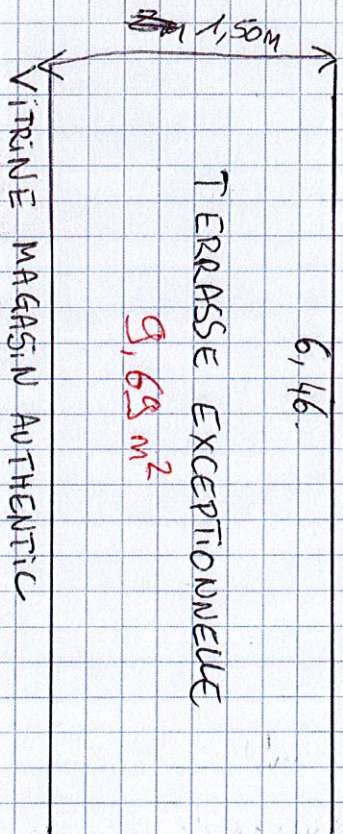 1,50M
6,46.
TERRASSE EXCEPTIONNELLE
9,69 m²
VITRINE MAGASIN AUTHENTIC